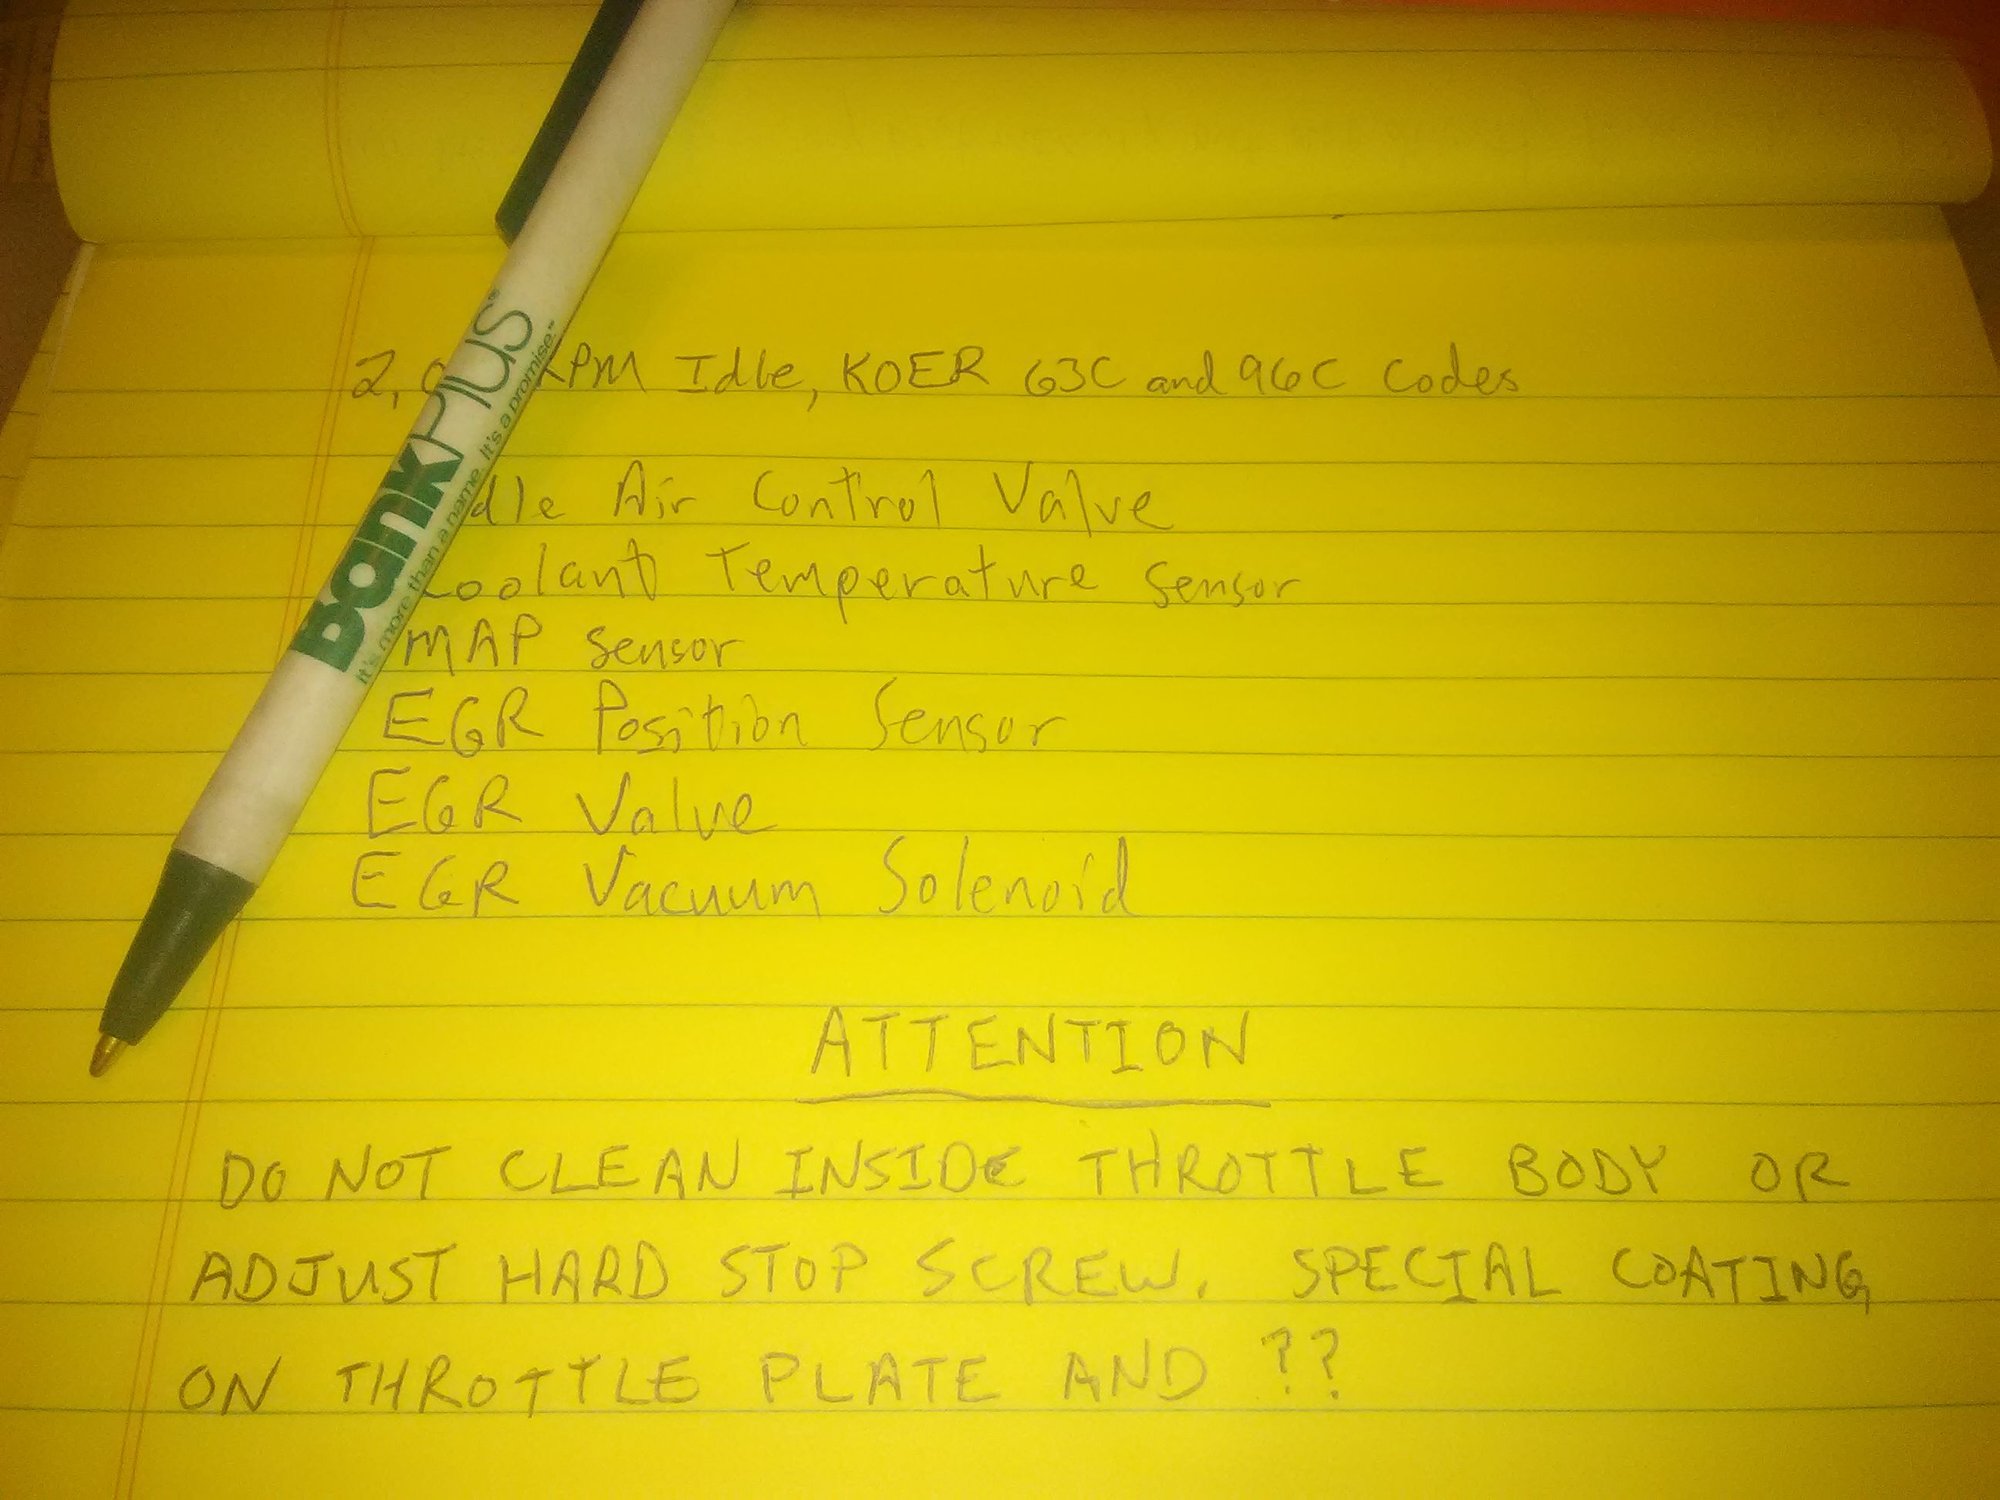 2, RPM Idle, KOER 63C and 96C Codes
dle Air Control Valve
Coolant Temperature Sensor
MAP Sensor
EGR Position Sensor
EGR Valve
EGR Vacuum Solenoid
ATTENTION
DO NOT CLEAN INSIDE THROTTLE BODY OR
ADJUST HARD STOP SCREW. SPECIAL COATING
ON THROTTLE PLATE AND ??
BankPlus®
It's more than a name. It's a promise.™